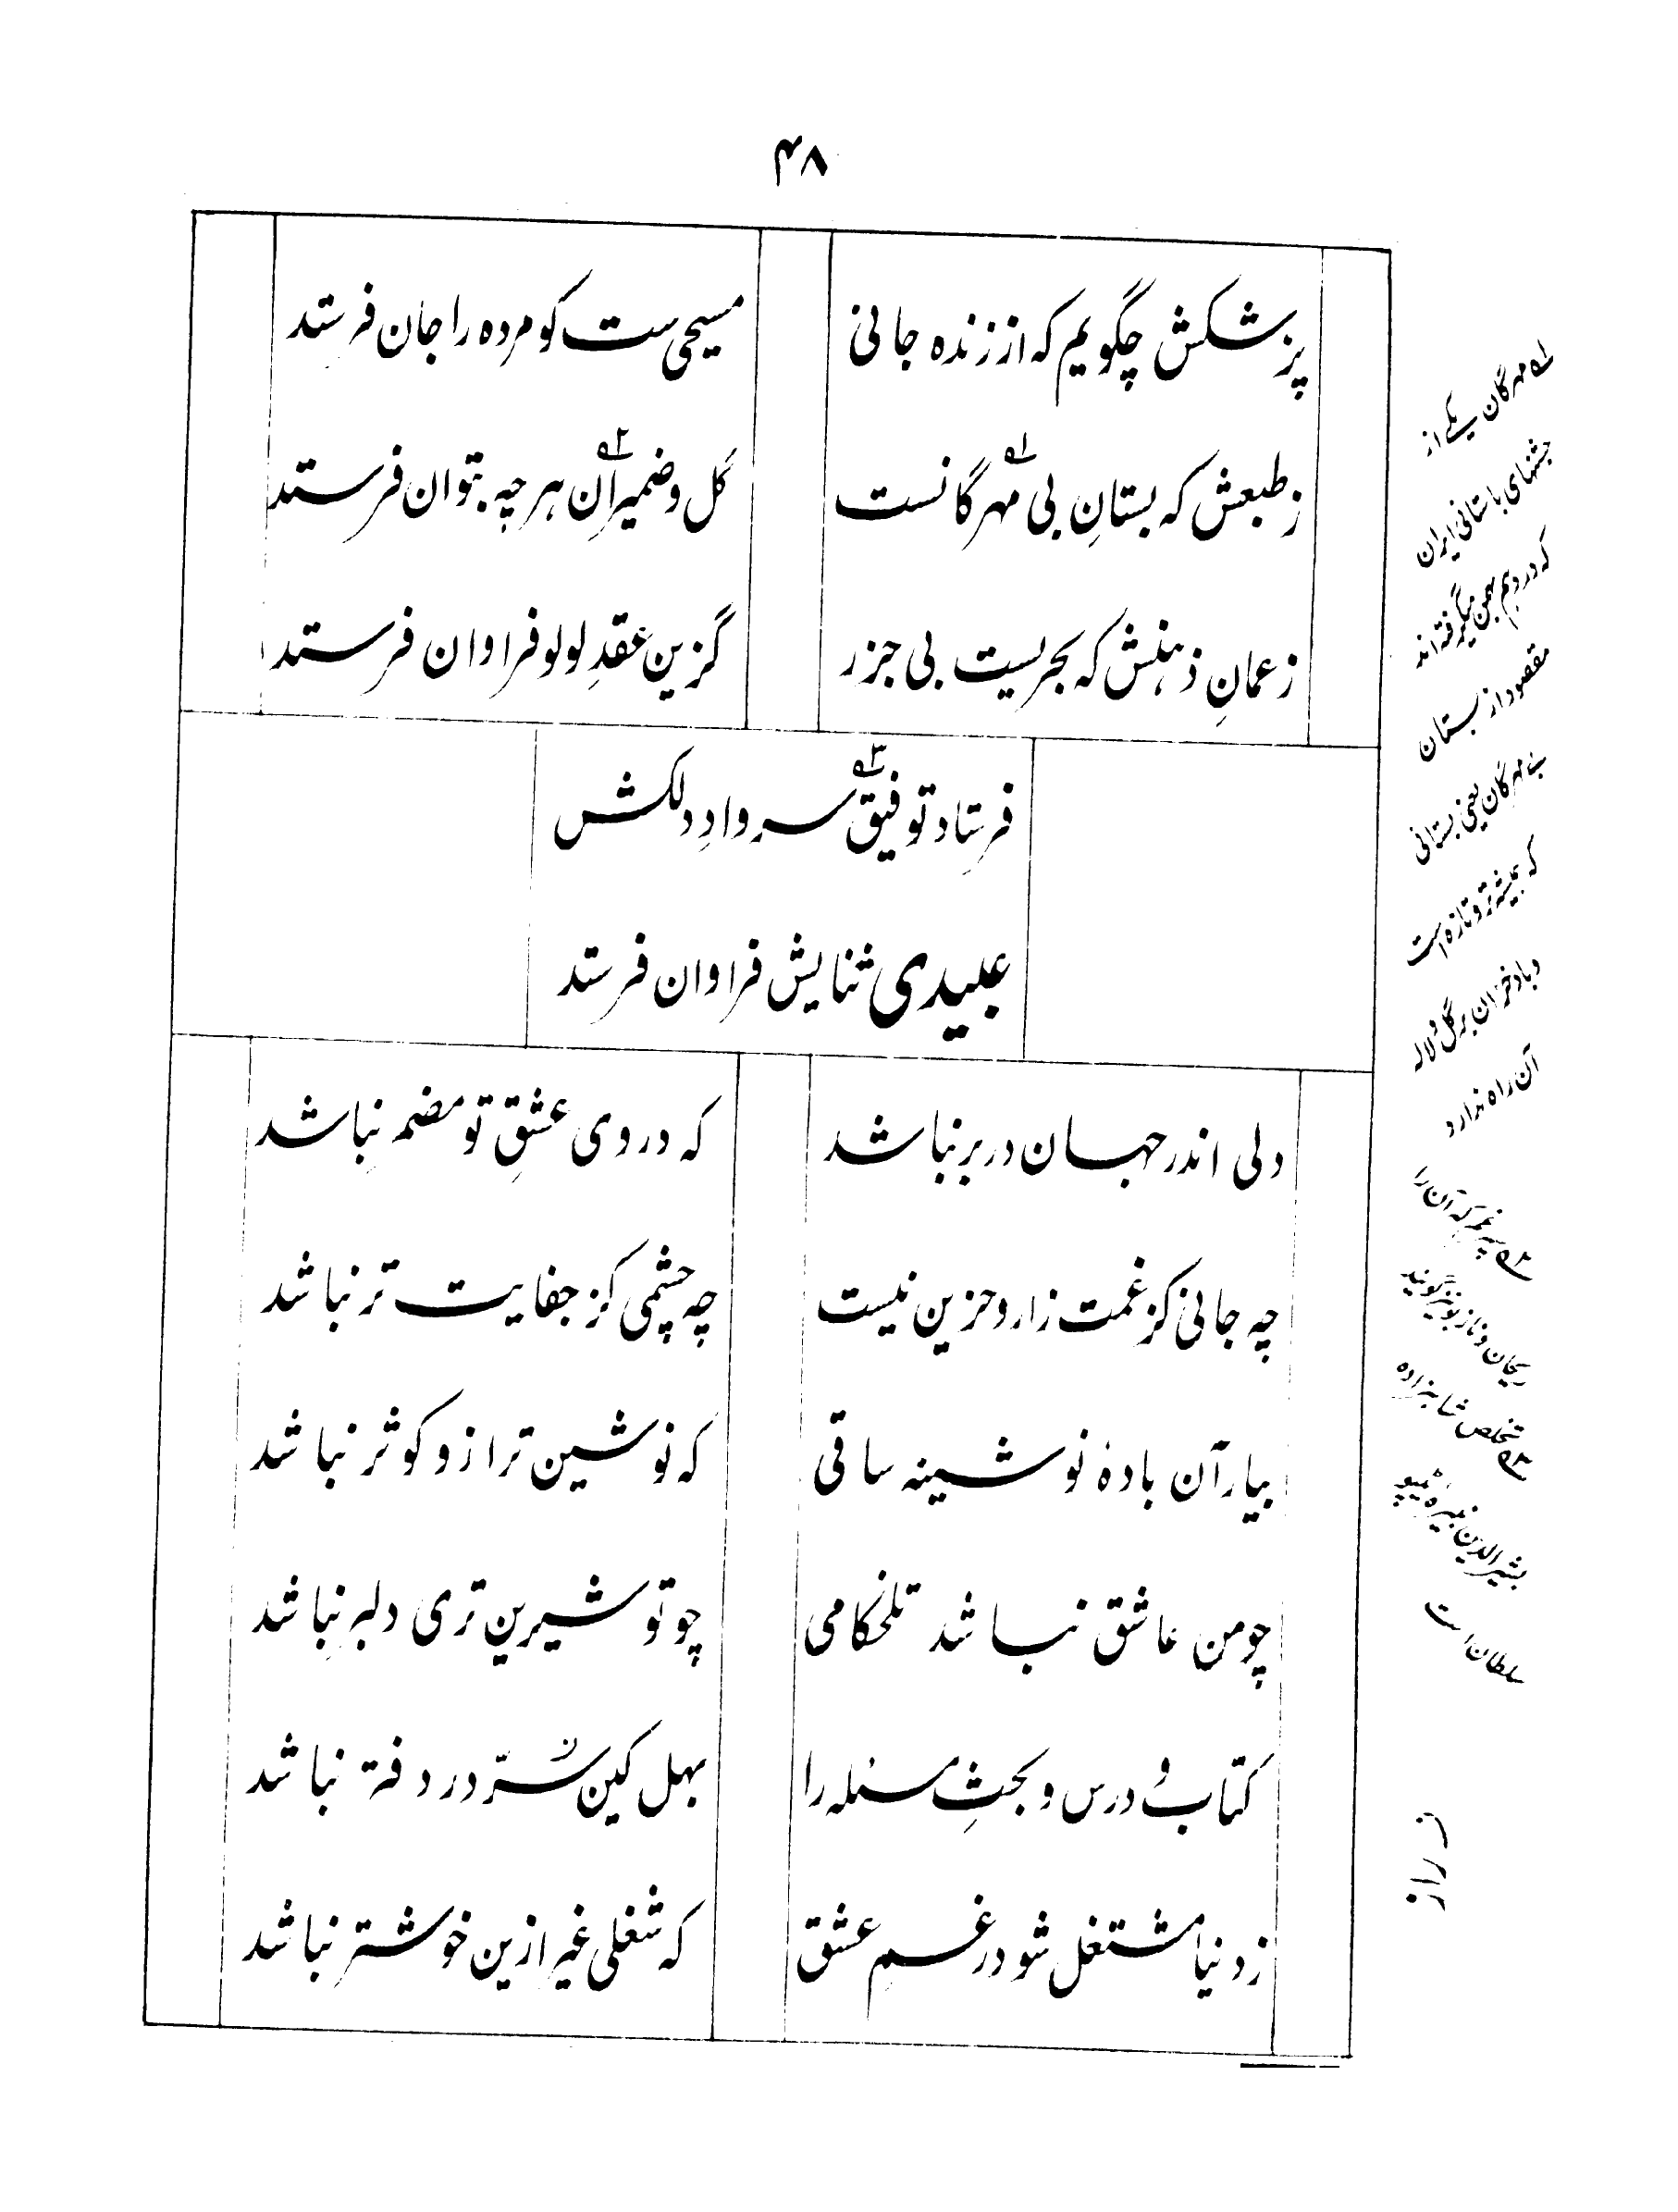 ۴۸
پزشکش چگویم که از زنده جانی
مسیحی ست کو مرده را جان فرستد
ز طبعش که بستانِ بی مهرگانست
گل و ضمیرانِ هر چه بتوان فرستد
ز عمانِ ذهنش که بحریست بی جزر
گزین عقدِ لولو فراوان فرستد
فرستاد توفیق سروادِ دلکش
عبیدی ثنایش فراوان فرستد
دلی اندر جهان در بر نباشد
که در وی عشقِ تو مضمر نباشد
چه جانی کز غمت زار و حزین نیست
چه چشمی کز جفایت تر نباشد
بیار آن بادهٔ نوشینه ساقی
که نوشین تر از و کوثر نباشد
چو من عاشق نباشد تلخکامی
چو تو شیرین تری دلبر نباشد
کتاب و درس و بحثِ مسئله را
بهل کین سرّ در دفتر نباشد
ز دنیا مشتغل شو در غم عشق
که شغلی غیر ازین خوشتر نباشد
۱ه مهرگان یکے از
جشنهای باستانی ایران
که در دهم بهمن میگرفته اند
مقصود از بستان
بے مهرگان یعنی بستانی
که همیشه تر و تازه است
و باد خزان بر گل و لاله
آن راه ندارد
که آن را
ریحان و نازبو نیز گویند
۳ه تخلص شاهزاده
بشیرالدین نبیره ٹیپو
سلطان است
ن راز